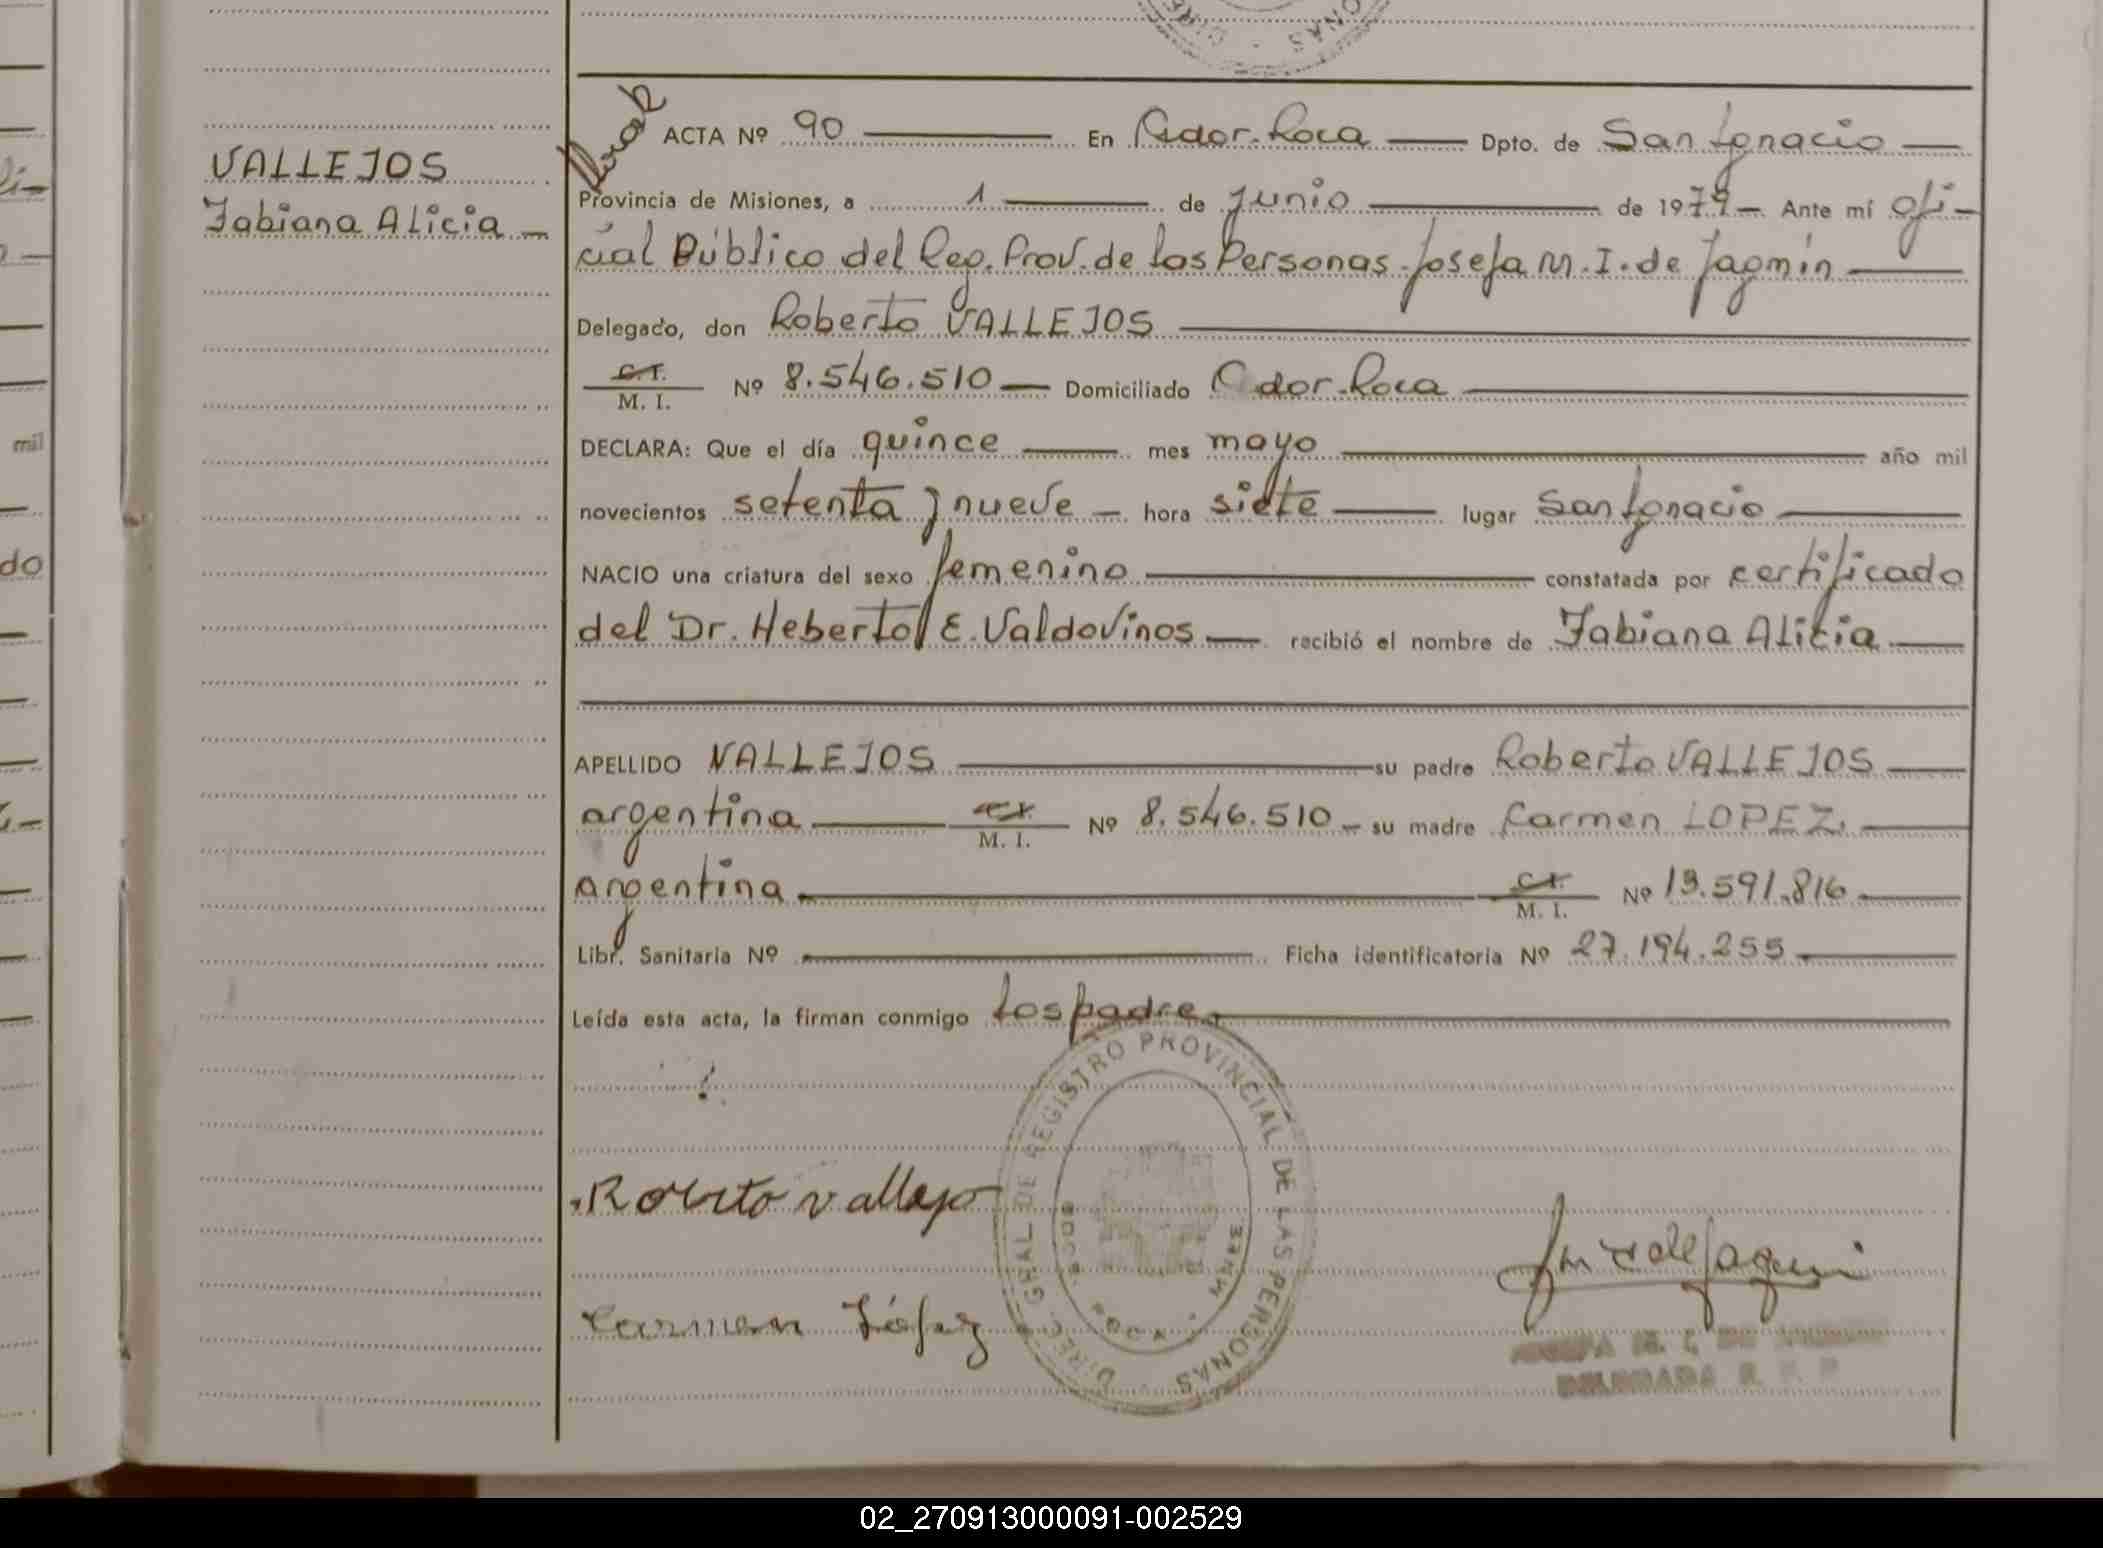 CIRE
ONAS
VALLEJOS
Fabiana Alicia
ACTA Nº 90 En Gdor. Roca Dpto. de San Ignacio
Provincia de Misiones, a 1 de junio de 1979 Ante mí ofi-
cial Público del Reg. Prov. de las Personas. Josefa M. I. de Jagmin
Delegado, don Roberto VALLEJOS
C. I.
M. I. Nº 8.546.510 Domiciliado Gdor. Roca
DECLARA: Que el día quince mes mayo año mil
novecientos setenta y nueve hora siete lugar San Ignacio
NACIO una criatura del sexo femenino constatada por certificado
del Dr. Heberto E. Valdovinos recibió el nombre de Fabiana Alicia
APELLIDO VALLEJOS su padre Roberto VALLEJOS
argentina M. I. Nº 8.546.510 su madre Carmen LOPEZ
argentina C. I. M. I. Nº 13.591.816
Libr. Sanitaria Nº Ficha identificatoria Nº 27.194.255
Leída esta acta, la firman conmigo los padre
DIREC. GRAL DE REGISTRO PROVINCIAL DE LAS PERSONAS
GDOR. ROCA - MNES
Roberto Vallejo
Carmen López
JOSEFA M. I. DE
DELEGADA R. P. P.
mil
do
02_270913000091-002529